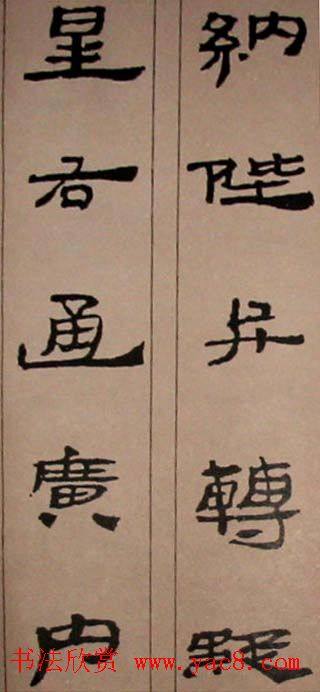 納陛弁轉疑
星右通廣內
书法欣赏 www.yac8.com